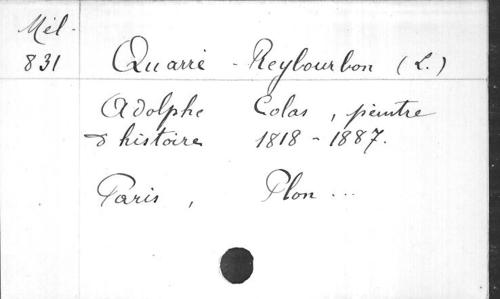 Mél.
831
Quarré - Reybourbon (L.)
Adolphe Colas, peintre
d'histoire 1818 - 1887.
Paris, Plon ...